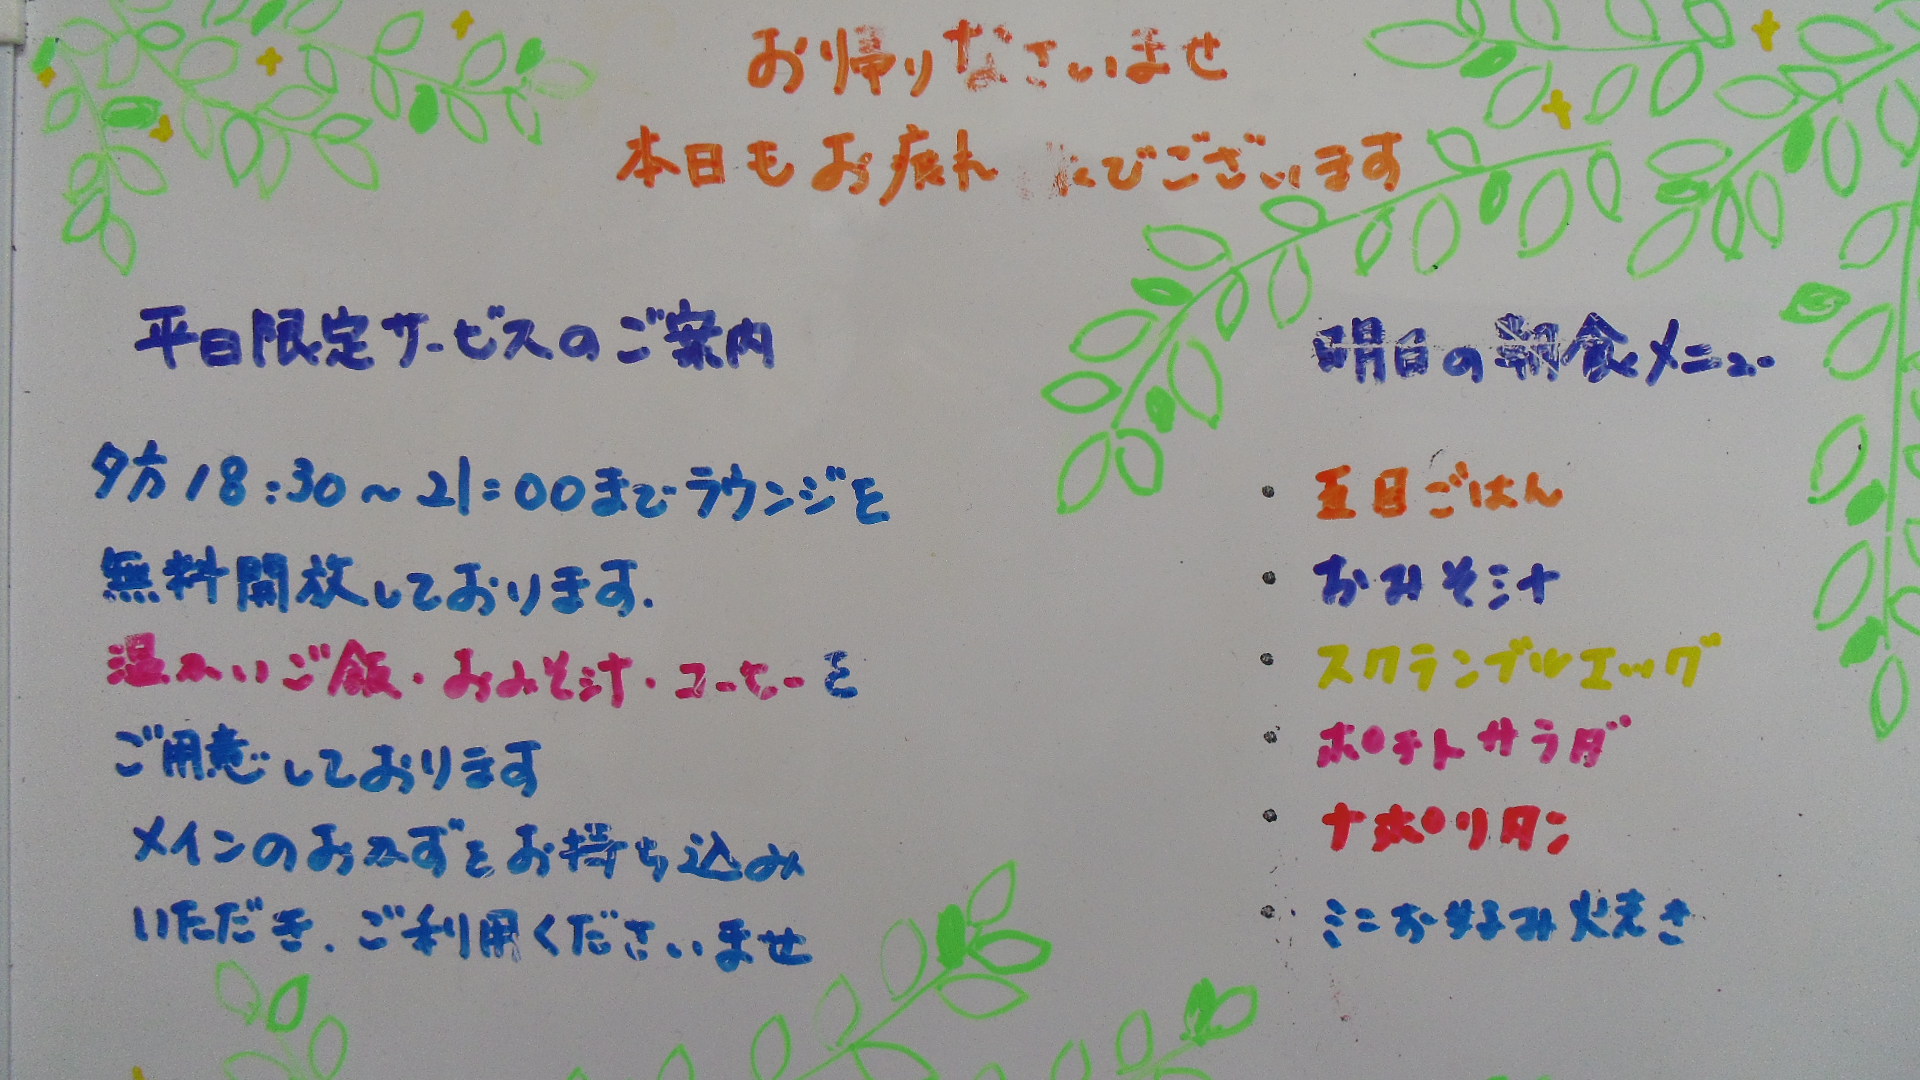 お帰りなさいませ
本日もお疲れ 

でございます
平日限定サービスのご案内
夕方18:30～21:00までラウンジを
無料開放しております.
温かいご飯・おみそ汁・コーヒーを
ご用意しております
メインのおかずをお持ち込み
いただき、ご利用くださいませ
明日の朝食メニュー
・五目ごはん
・おみそ汁
・スクランブルエッグ
・ポテトサラダ
・ナポリタン
・ミニお好み焼き